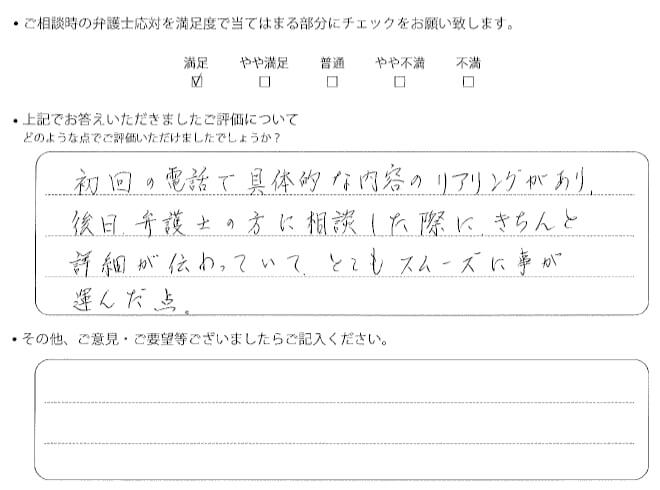 ・ご相談時の弁護士応対を満足度で当てはまる部分にチェックをお願い致します。
満足 やや満足 普通 やや不満 不満
☑ □ □ □ □
・上記でお答えいただきましたご評価について
どのような点でご評価いただけましたでしょうか？
初回の電話で具体的な内容のリアリングがあり、
後日、弁護士の方に相談した際に、きちんと
詳細が伝わっていて、とてもスムーズに事が
運んだ点。
・その他、ご意見・ご要望等ございましたらご記入ください。